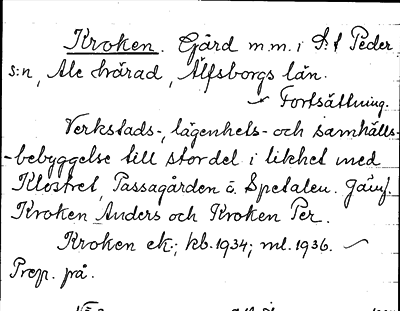 Kroken. Gård m.m. i S:t Peder
s:n, Ale härad, Älfsborgs län.
Fortsättning.
Verkstads-, lägenhets- och samhälls-
-bebyggelse till stor del i likhet med
Klostret, Passagården o. Spetalen. Jämf.
Kroken Anders och Kroken Per.
Kroken ek.; kb. 1934; ml. 1936.
Prep. på.